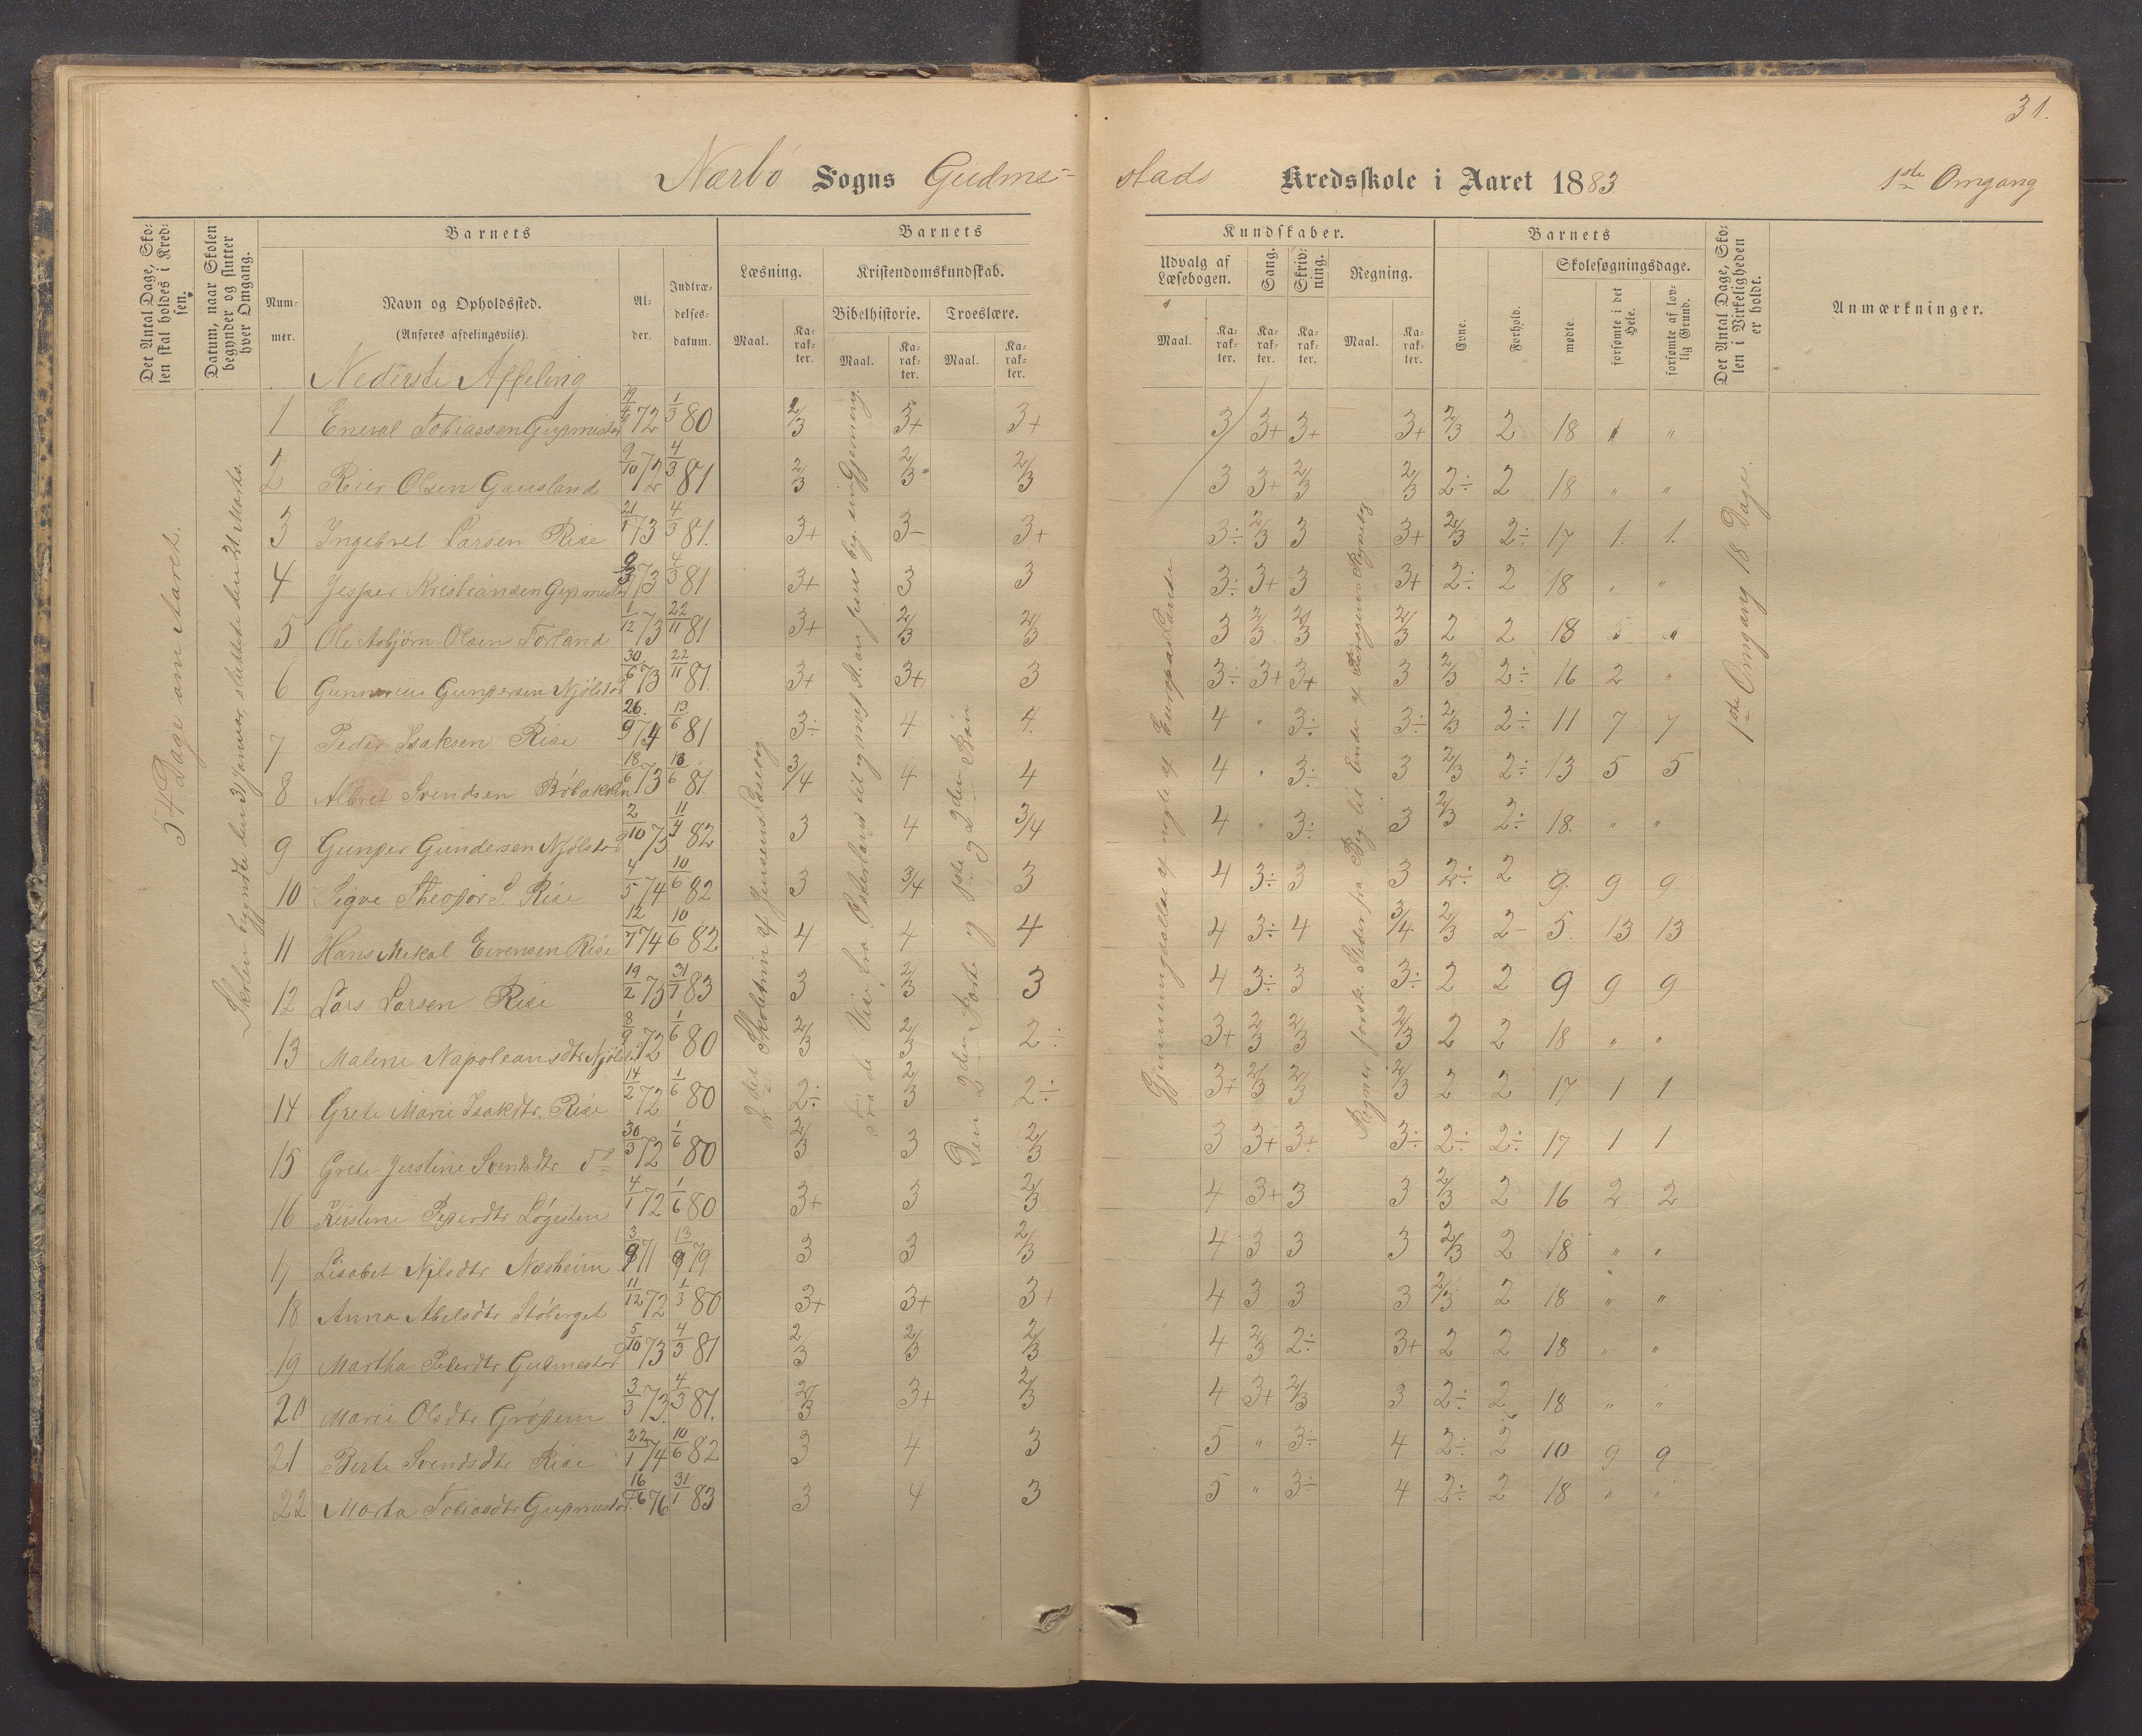 31.
Nærbø Sogns Gudme-
stads Kredsskole i Aaret 1883 1ste Omgang
Det Antal Dage, Sko-
len skal holdes i Kred-
sen.
Datum, naar Skolen
begynder og slutter
hver Omgang.
Barnets
Num-
mer.
Navn og Opholdssted.
(Anføres afdelingsviis).
Al-
der.
Indtræ-
delses-
datum.
Barnets
Læsning.
Kristendomskundskab.
Bibelhistorie. Troeslære.
Maal. Ka-
rak-
ter.
Maal. Ka-
rak-
ter.
Maal. Ka-
rak-
ter.
Kundskaber.
Udvalg af
Læsebogen.
Sang.
Skriv-
ning.
Regning.
Maal. Ka-
rak-
ter.
Ka-
rak-
ter.
Ka-
rak-
ter.
Maal. Ka-
rak-
ter.
Barnets
Evne.
Forhold.
Skolesøgningsdage.
mødte.
forsømte i det
Hele.
forsømte af lov-
lig Grund.
Det Antal Dage, Sko-
len i Virkeligheden
er holdt.
Anmærkninger.
54 Dage om Aaret.
Skolen begyndte den 31 Januar, sluttede den 21. Marts.
Nederste
1 Tobiassen 19/4 72 1/3 80 2/3 3+ 3+ 3 3+ 3+ 3+ 2/3 2 18 " "
2 Reier Olsen Gausland 9/10 72 4/3 81 2/3 2/3 2/3 3 3+ 2/3 2/3 2÷ 2 18 " "
3 Ingebret Larsen Rise 21/1 73 4/3 81. 3+ 3- 3+ 3÷ 2/3 3 3+ 2/3 2÷ 17 1. 1.
4 Jesper Kristiansen 73 4/3 81 3+ 3 3 3÷ 3+ 3 3+ 2÷ 2 18 " "
5 Ole Asbjørn Olsen Torland 1/12 73 22/11 81 3+ 2/3 2/3 3 2/3 2/3 2/3 2 2 18 " "
6 Njølstad 30/6 73 22/11 81. 3+ 3+ 3 3÷ 3+ 3+ 3 2/3 2÷ 16 2 "
7 Peder Isaksen Rise 26/9 74 13/6 81 3÷ 4 4. 4 " 3÷ 3÷ 2/3 2÷ 11 7 7
8 Albret Svendsen 18/6 73 13/6 81. 3/4 4 4 4 " 3÷ 3 2/3 2÷ 13 5 5
9 Gundersen Njølstad 2/10 73 11/4 82 3 4 3/4 4 " 3÷ 3 2/3 2÷ 18. " "
10 Sigve S. Rise 4/5 74 10/6 82 3 3/4 3 4 3÷ 3 3 2÷ 2 9. 9 9
11 Hans Mikal Rise 12/7 74 10/6 82 4 4 4 4 3÷ 4 3/4 2/3 2- 5. 13 13
12 Lars Larsen Rise 19/2 75 31/1 83 3 2/3 3 4 3÷ 3 3÷ 2 2 9 9 9
13 Malene Napoleansdtr 72 1/6 80 2/3 2/3 2÷ 3+ 2/3 2/3 2/3 2 2 18 " "
14 Grete Marie Isakdtr. Rise 14/2 72 1/6 80 2÷ 2/3 2÷ 3+ 2/3 2/3 2/3 2 2 17 1 1
15 Grete Justine Svendsdtr do 30/3 72 1/6 80 2/3 3 2/3 3 3+ 3+ 3÷ 2÷ 2÷ 17 1 1
16 Kirstine 4/1 72 1/6 80 3+ 3 2/3 4 3+ 3 3 2/3 2 16 2 2
17 Lisabet Nilsdtr Næsheim 3/9 71 13/9 79 3 3 2/3 4 3 3 3 2/3 2 18 " "
18 Anna Abelsdtr Støberget 11/12 72 1/3 80 3+ 3+ 3+ 4 3 3 3 2/3 2 18 " "
19 Martha Pedersdtr Gudmestad 5/10 73 4/3 81 2/3 2/3 2/3 4 2/3 2÷ 3+ 2 2 18 " "
20 Marie Olsdtr 3/3 73. 4/3 81. 2/3 3+ 2/3 4 3+ 2/3 3 2÷ 2 18 " "
21 Berte Svendsdtr Rise 22/1 74 10/6 82 3 4 3 5 " 3÷ 4 2÷ 2 10 9 9
22 Marta Tobiasdtr 16/6 76 31/1 83 3 4 3 5 " 3÷ 4 2÷ 2 18 " "
Jensens Læsebog
Den 2den Part og 1ste og 2den Bøn
Europas Lande
1ste Omgang 18 Dage.